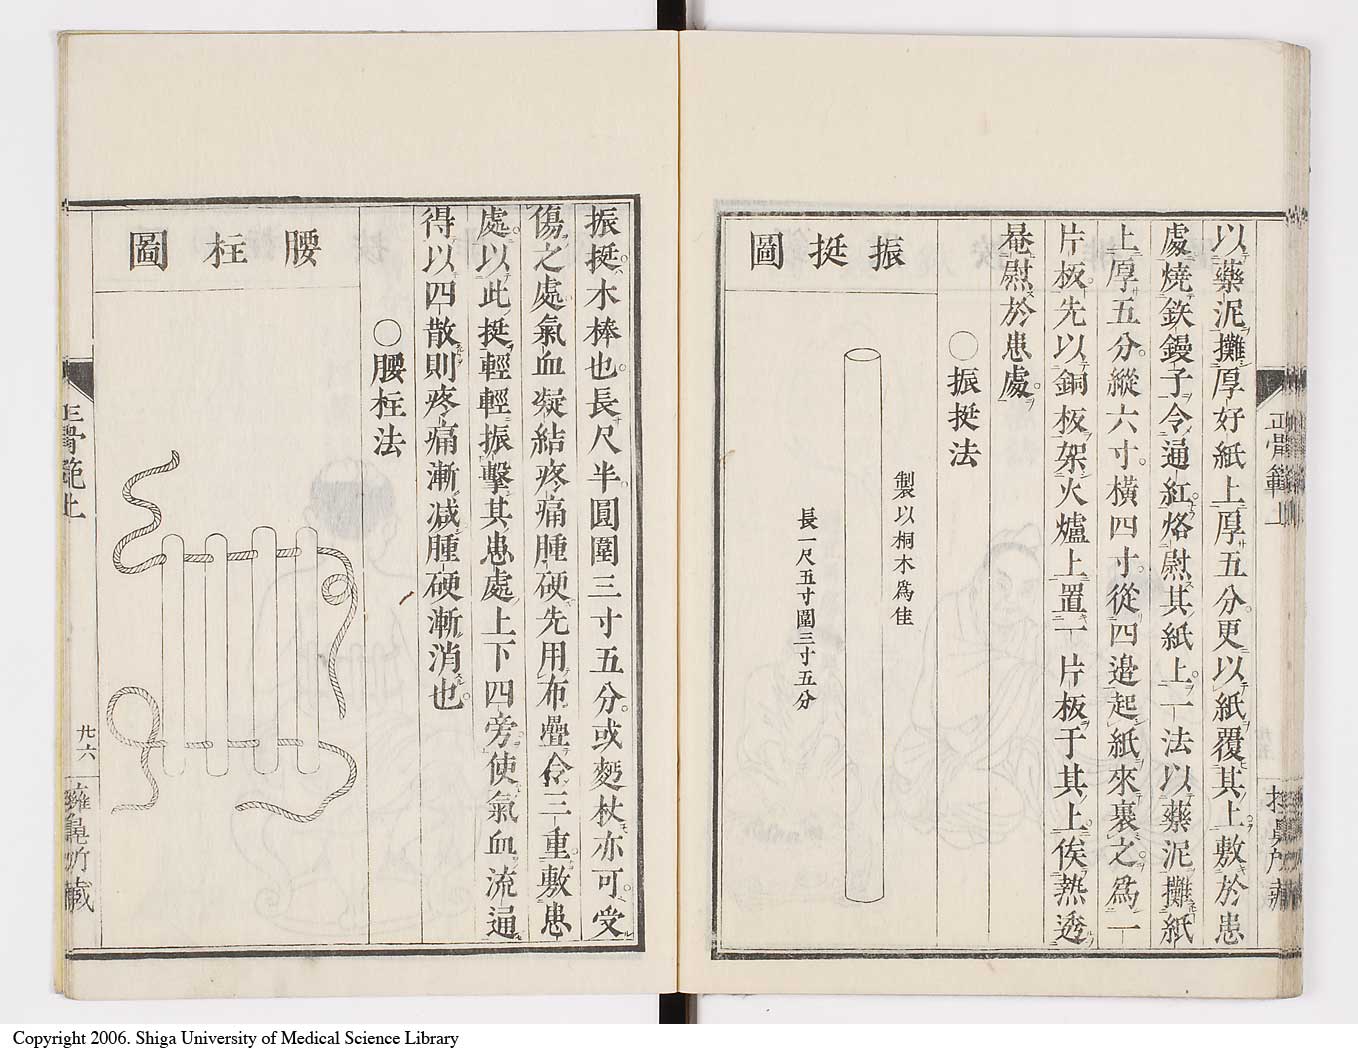 以藥泥攤厚好紙上厚五分更以紙覆其上敷於患
處燒鉄鏝子令通紅烙熨其紙上一法以藥泥攤紙
上厚五分縱六寸橫四寸從四邉起紙來裹之為一
片板先以銅板架火爐上置一片板于其上俟熱透
㫪尉於患處
○振挺法
振挺圖
製以桐木為佳
長一尺五寸圍三寸五分
振挺木棒也長尺半圓圍三寸五分或麪杖亦可受
傷之處氣血凝結疼痛腫硬先用布疊令三重敷患
處以此挺輕輕振擊其患處上下四旁使氣血流通
得以四散則疼痛漸减腫硬漸消也
○腰柱法
腰柱圖
正骨範上
廿六
Copyright 2006. Shiga University of Medical Science Library